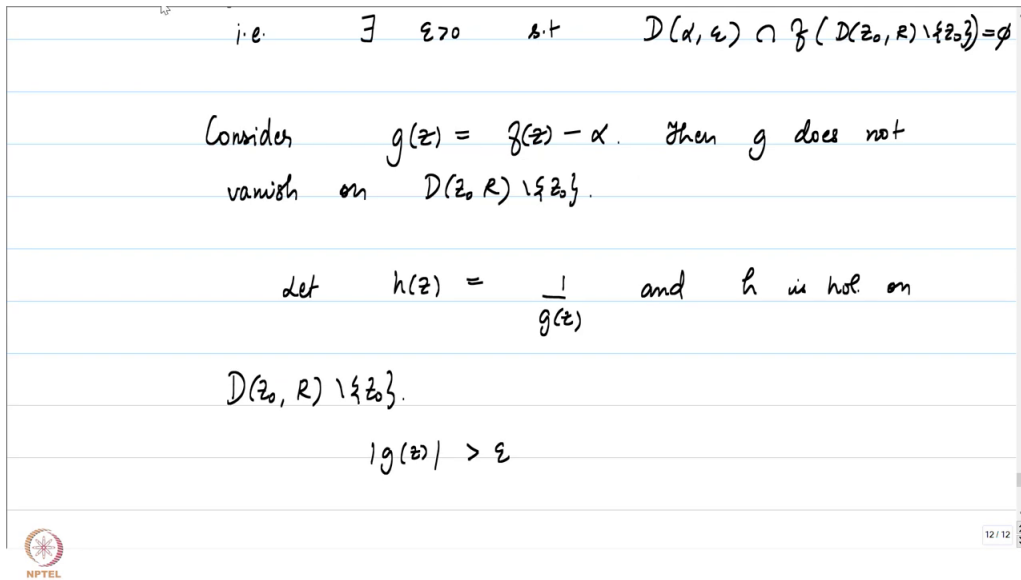 i.e. ∃ ε>0 s.t D(α, ε) ∩ f( D(z₀, R) \{z₀}) = φ
Consider g(z) = f(z) − α. Then g does not
vanish on D(z₀ R) \{z₀}.
Let h(z) = 1/g(z) and h is hol. on
D(z₀, R) \{z₀}.
|g(z)| > ε
12 / 12
NPTEL